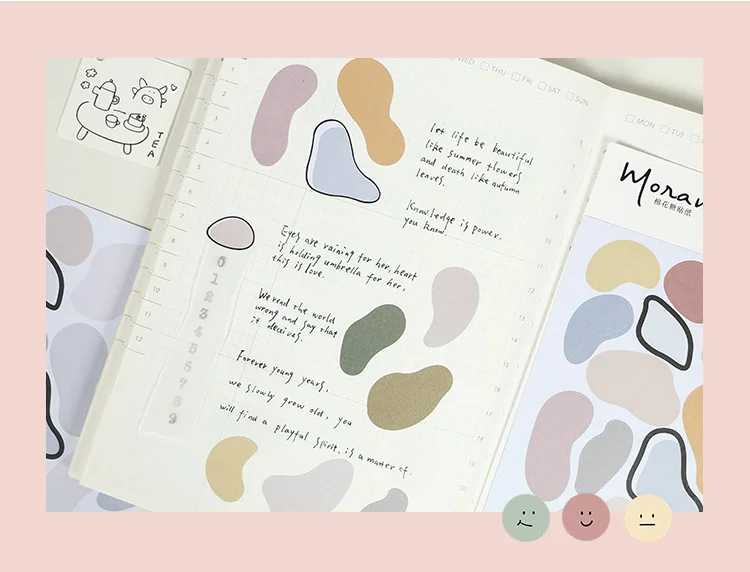 WED THU FRI SAT SUN
MON TUE
let life be beautiful
like summer flowers
and death like autumn
leaves.
Knowledge is power.
you know.
Eyes are raining for her, heart
is holding umbrella for her,
this is love.
We read the world
wrong and say that
it deceives.
Forever young years,
we slowly grow old, you
will find a playful spirit. is a matter of.
TEA
0
1
2
3
4
5
6
7
8
9
Moran
棉花糖贴纸